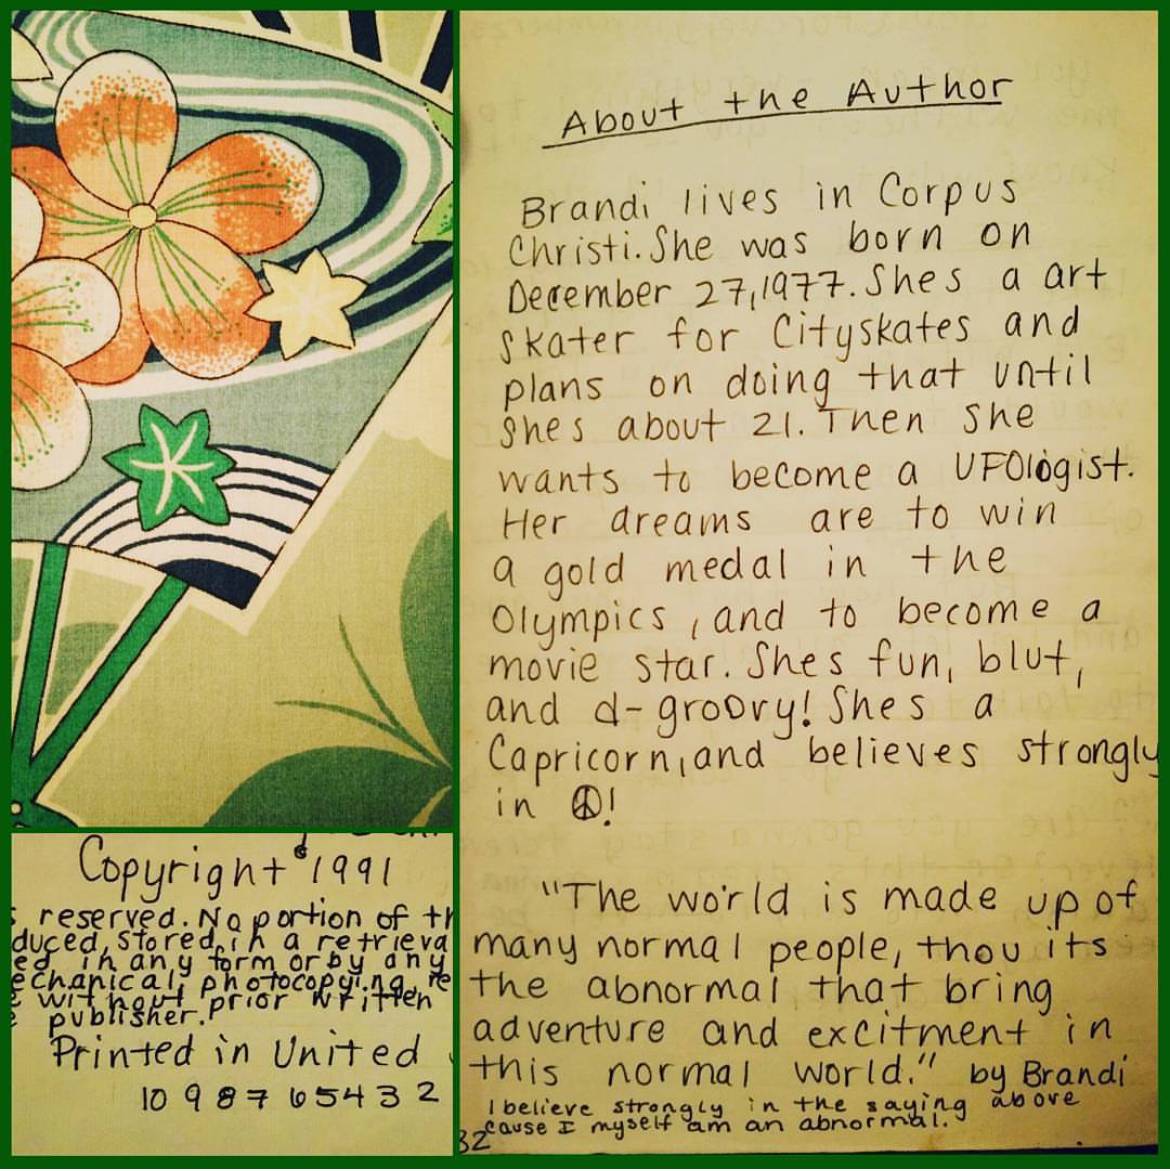 About the Author
Brandi lives in Corpus
Christi. She was born on
December 27, 1977. Shes a art
skater for Cityskates and
plans on doing that until
shes about 21. Then she
wants to become a UFOlogist.
Her dreams are to win
a gold medal in the
Olympics, and to become a
movie star. Shes fun, blut,
and d-groovy! Shes a
Capricorn, and believes strongly
in ☮!
"The world is made up of
many normal people, thou its
the abnormal that bring
adventure and excitment in
this normal world." by Brandi
I believe strongly in the saying above
cause I myself am an abnormal.
32
Copyright 1991
s reserved. No portion of th
duced, stored, in a retrieva
ed in any form or by any
echanical, photocopying, re
e without prior written
e publisher.
Printed in United
10 9 8 7 6 5 4 3 2